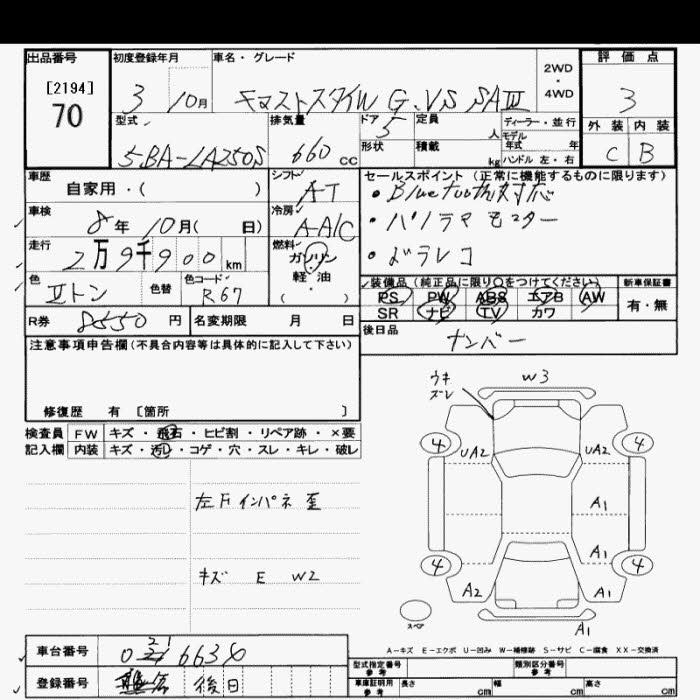 出品番号 初度登録年月 車名・グレード 2WD・4WD 評価点
[2194]
70
3 10月 G・VS SAⅢ 3
型式 排気量 ドア 5 定員 人 ディーラー・並行 外装 内装
モデル年式 年
5BA-LA250S 660 cc 形状 積載 kg ハンドル 左・右 C B
車歴 シフト セールスポイント (正常に機能するものに限ります)
自家用・( ) A-T ・Bluetooth対応
車検 冷房 ・パノラマモニター
8年 10月( 日) A-A/C ・ドラレコ
走行 燃料
2万9千900km ガソリン・軽・油 ( )
色 色替 色コード 装備品 (純正品に限り○をつけてください) 新車保証書
Ⅱトン R67 PS PW ABS エアB AW 有・無
SR ナビ TV カワ
R券 8550円 名変期限 月 日 後日品
ナンバー
注意事項申告欄 (不具合内容等は具体的に記入して下さい)
修復歴 有 〔箇所 〕
検査員 FW キズ・飛石・ヒビ割・リペア跡・×要
記入欄 内装 キズ・汚れ・コゲ・穴・スレ・キレ・破レ
ウキ
ズレ
W3
4 UA2 UA2 4
左Fインパネ歪 A1
A1
4 4
キズ E W2 A2 A1
スペア
A1
A-キズ E-エクボ U-凹み W-補修跡 S-サビ C-腐食 XX-交換済
車台番号 型式指定番号 参考 類別区分番号 参考
登録番号 後日 車庫証明用 参考 長さ cm 幅 cm 高さ cm